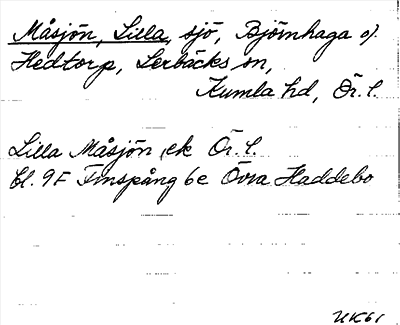 Måsjön, Lilla, sjö, Björnhaga o.
Hedtorp, Lerbäcks sn,
Kumla hd, Ör. l.
Lilla Måsjön, ek Ör. l.
bl. 9F Finspång 6e Övra Haddebo
UK61